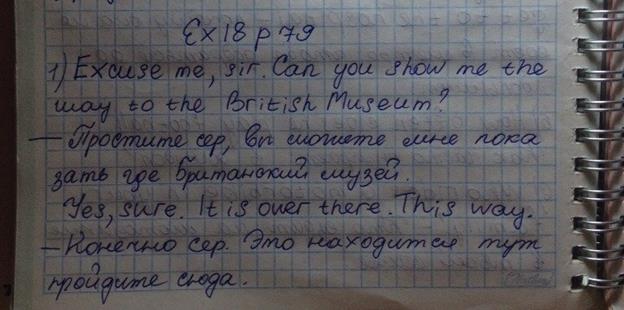 Ex 18 p 79
1) Excuse me, sir. Can you show me the
way to the British Museum?
— Простите сер, вы можете мне пока
зать где Британский музей.
Yes, sure. It is over there. This way.
— Конечно сер. Это находится тут
пройдите сюда.